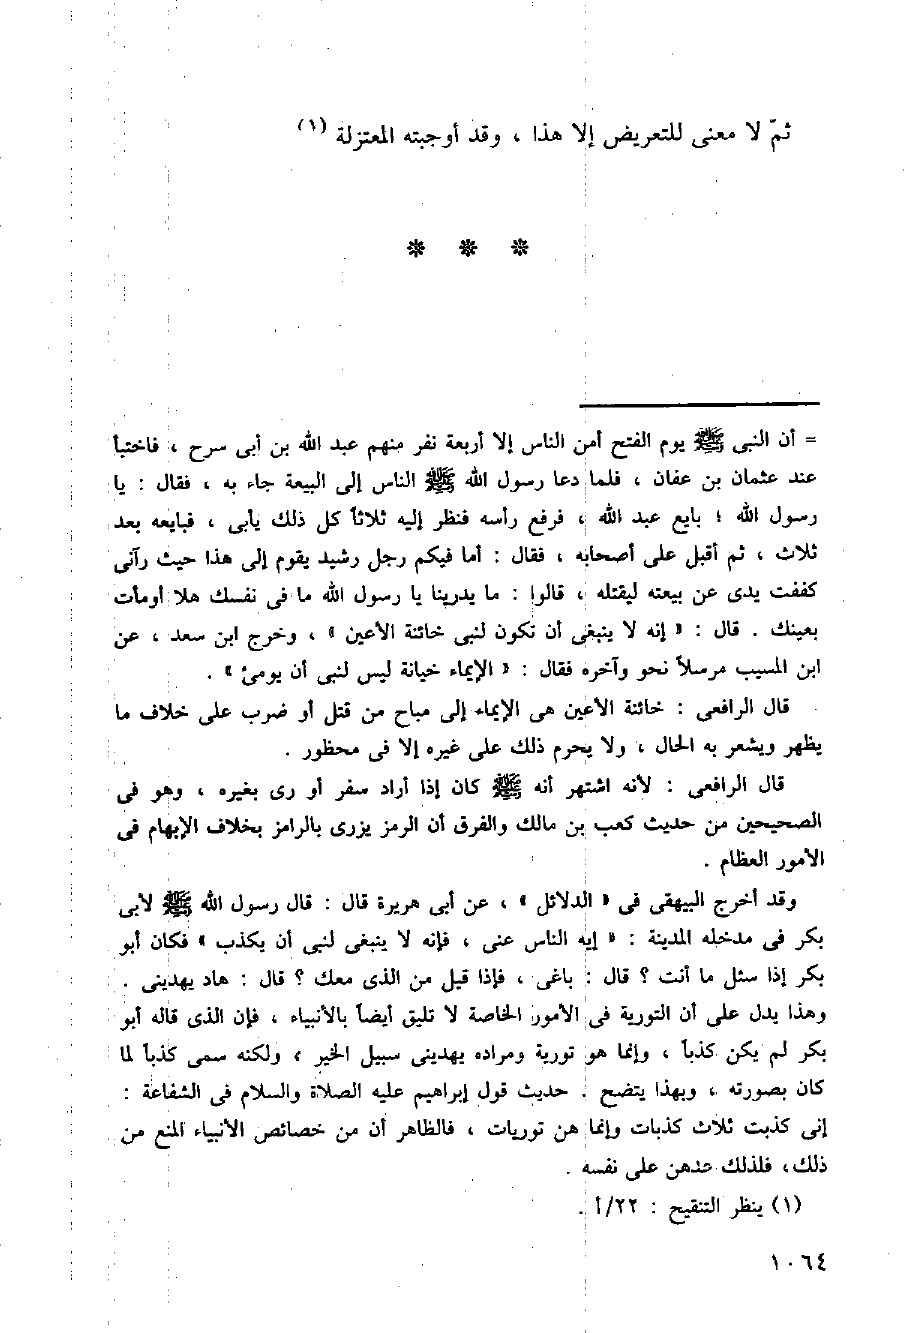 ثمّ لا معنى للتعريض إلا هذا ، وقد أوجبته المعتزلة (١)
* * *
= أن النبى ﷺ يوم الفتح أمن الناس إلا أربعة نفر منهم عبد الله بن أبى سرح ، فاختبأ
عند عثمان بن عفان ، فلما دعا رسول الله ﷺ الناس إلى البيعة جاء به ، فقال : يا
رسول الله ! بايع عبد الله ، فرفع رأسه فنظر إليه ثلاثاً كل ذلك يأبى ، فبايعه بعد
ثلاث ، ثم أقبل على أصحابه ، فقال : أما فيكم رجل رشيد يقوم إلى هذا حيث رآنى
كففت يدى عن بيعته ليقتله ، قالوا : ما يدرينا يا رسول الله ما فى نفسك هلا أومأت
بعينك . قال : « إنه لا ينبغى أن تكون لنبى خائنة الأعين » ، وخرج ابن سعد ، عن
ابن المسيب مرسلاً نحو وآخره فقال : « الإيماء خيانة ليس لنبى أن يومئ » .
قال الرافعى : خائنة الأعين هى الإيماء إلى مباح من قتل أو ضرب على خلاف ما
يظهر ويشعر به الحال ، ولا يحرم ذلك على غيره إلا فى محظور .
قال الرافعى : لأنه اشتهر أنه ﷺ كان إذا أراد سفر أو رى بغيره ، وهو فى
الصحيحين من حديث كعب بن مالك والفرق أن الرمز يزرى بالرامز بخلاف الإبهام فى
الأمور العظام .
وقد أخرج البيهقى فى « الدلائل » ، عن أبى هريرة قال : قال رسول الله ﷺ لأبى
بكر فى مدخله المدينة : « إيه الناس عنى ، فإنه لا ينبغى لنبى أن يكذب » فكان أبو
بكر إذا سئل ما أنت ؟ قال : باغى ، فإذا قيل من الذى معك ؟ قال : هاد يهدينى .
وهذا يدل على أن التورية فى الأمور الخاصة لا تليق أيضاً بالأنبياء ، فإن الذى قاله أبو
بكر لم يكن كذباً ، وإنما هو تورية ومراده يهدينى سبيل الخير ، ولكنه سمى كذباً لما
كان بصورته ، وبهذا يتضح . حديث قول إبراهيم عليه الصلاة والسلام فى الشفاعة :
إنى كذبت ثلاث كذبات وإنما هن توريات ، فالظاهر أن من خصائص الأنبياء المنع من
ذلك، فلذلك عدهن على نفسه .
(١) ينظر التنقيح : ٢٢/أ .
١٠٦٤